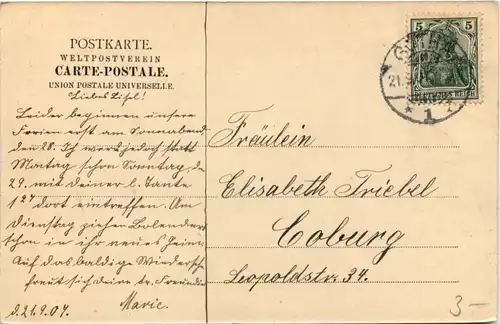 POSTKARTE.
WELTPOSTVEREIN
CARTE-POSTALE.
UNION POSTALE UNIVERSELLE.
Liebes Lisel!
Leider beginnen unsere
Ferien erst am Sonnabend
den 28. Ich werde jedoch statt
Montag schon Sonntag, d.
29. mit deiner l. Tante
1 27 dort eintreffen. Am
Dienstag ziehen
schon in ihr neues Heim.
Auf das baldige Wiedersehn
freut sich deine tr. Freundin
Marie.
d. 21.9.07.
5 5
GOTHA
21.9.
* 1
Fräulein
Elisabeth Triebel
Coburg
Leopoldstr. 34.
3-